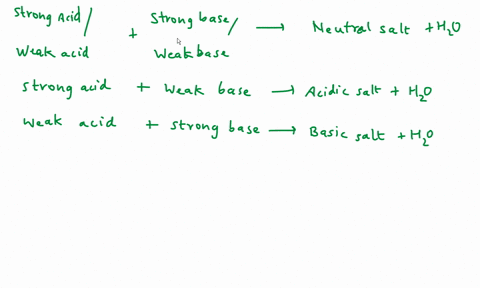 Strong Acid/ + Strong base/ → Neutral salt + H₂O
Weak acid Weak base
strong acid + Weak base → Acidic salt + H₂O
Weak acid + strong base → Basic salt + H₂O